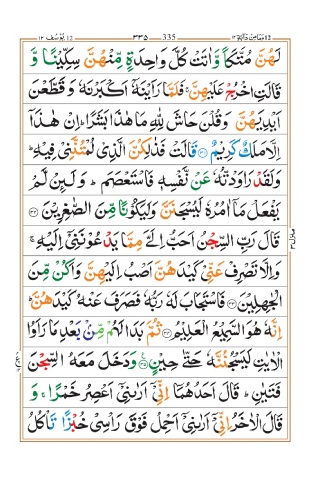 يوسف ١٢ 12 ٣٣٥ 335 ومامن دابة ١٢
لَهُنَّ مُتَّكَاً وَّاٰتَتْ كُلَّ وَاحِدَةٍ مِّنْهُنَّ سِكِّيْنًا وَّ
قَالَتِ اخْرُجْ عَلَيْهِنَّ ۚ فَلَمَّا رَاَيْنَهٗۤ اَكْبَرْنَهٗ وَ قَطَّعْنَ
اَيْدِيَهُنَّ وَقُلْنَ حَاشَ لِلّٰهِ مَا هٰذَا بَشَرًا ؕ اِنْ هٰذَاۤ
اِلَّا مَلَكٌ كَرِيْمٌ ﴿۳۱﴾ قَالَتْ فَذٰلِكُنَّ الَّذِيْ لُمْتُنَّنِيْ فِيْهِ ؕ
وَلَقَدْ رَاوَدْتُّهٗ عَنْ نَّفْسِهٖ فَاسْتَعْصَمَ ؕ وَلَىِٕنْ لَّمْ
يَفْعَلْ مَاۤ اٰمُرُهٗ لَيُسْجَنَنَّ وَلَيَكُوْنًا مِّنَ الصّٰغِرِيْنَ ﴿۳۲﴾
قَالَ رَبِّ السِّجْنُ اَحَبُّ اِلَيَّ مِمَّا يَدْعُوْنَنِيْۤ اِلَيْهِ ۚ
وَاِلَّا تَصْرِفْ عَنِّيْ كَيْدَهُنَّ اَصْبُ اِلَيْهِنَّ وَاَكُنْ مِّنَ
الْجٰهِلِيْنَ ﴿۳۳﴾ فَاسْتَجَابَ لَهٗ رَبُّهٗ فَصَرَفَ عَنْهُ كَيْدَهُنَّ ؕ
اِنَّهٗ هُوَ السَّمِيْعُ الْعَلِيْمُ ﴿۳۴﴾ ثُمَّ بَدَا لَهُمْ مِّنْۢ بَعْدِ مَا رَاَوُا
الْاٰيٰتِ لَيَسْجُنُنَّهٗ حَتّٰى حِيْنٍ ﴿۳۵﴾ وَدَخَلَ مَعَهُ السِّجْنَ
فَتَيٰنِ ؕ قَالَ اَحَدُهُمَاۤ اِنِّيْۤ اَرٰىنِيْۤ اَعْصِرُ خَمْرًا ۚ وَ
قَالَ الْاٰخَرُ اِنِّيْۤ اَرٰىنِيْۤ اَحْمِلُ فَوْقَ رَاْسِيْ خُبْزًا تَاْكُلُ
منزل ٣